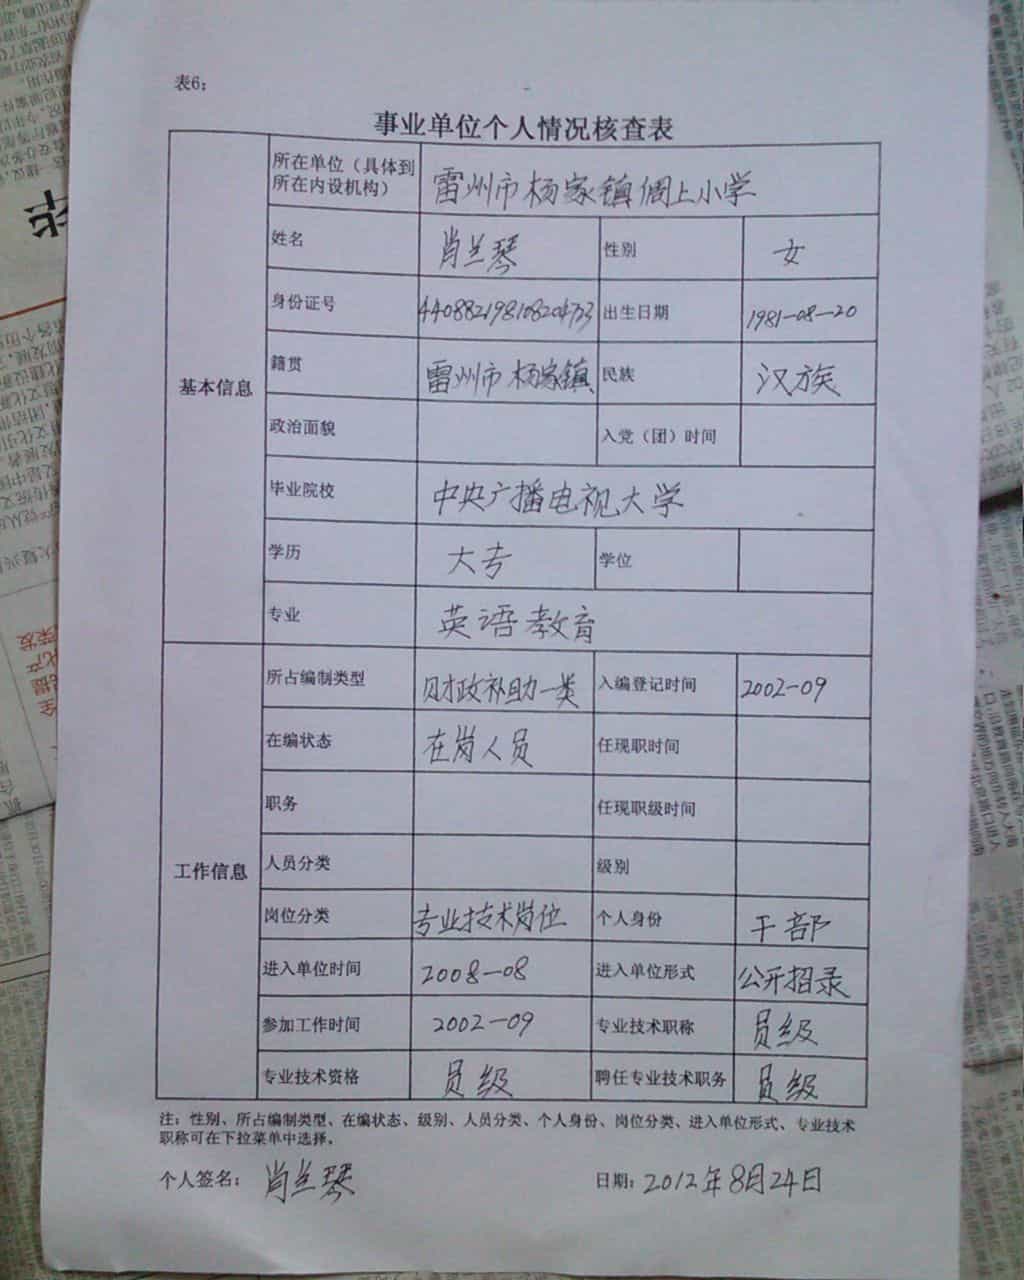 表6：
事业单位个人情况核查表
基本信息
所在单位（具体到
所在内设机构）
雷州市杨家镇倜上小学
姓名 肖兰琴 性别 女
身份证号 出生日期 1981-08-20
籍贯 雷州市杨家镇 民族 汉族
政治面貌 入党（团）时间
毕业院校 中央广播电视大学
学历 大专 学位
专业 英语教育
工作信息
所占编制类型 财政补助一类 入编登记时间 2002-09
在编状态 在岗人员 任现职时间
职务 任现职级时间
人员分类 级别
岗位分类 专业技术岗位 个人身份 干部
进入单位时间 2008-08 进入单位形式 公开招录
参加工作时间 2002-09 专业技术职称 员级
专业技术资格 员级 聘任专业技术职务 员级
注：性别、所占编制类型、在编状态、级别、人员分类、个人身份、岗位分类、进入单位形式、专业技术
职称可在下拉菜单中选择。
个人签名：肖兰琴 日期：2012年8月24日